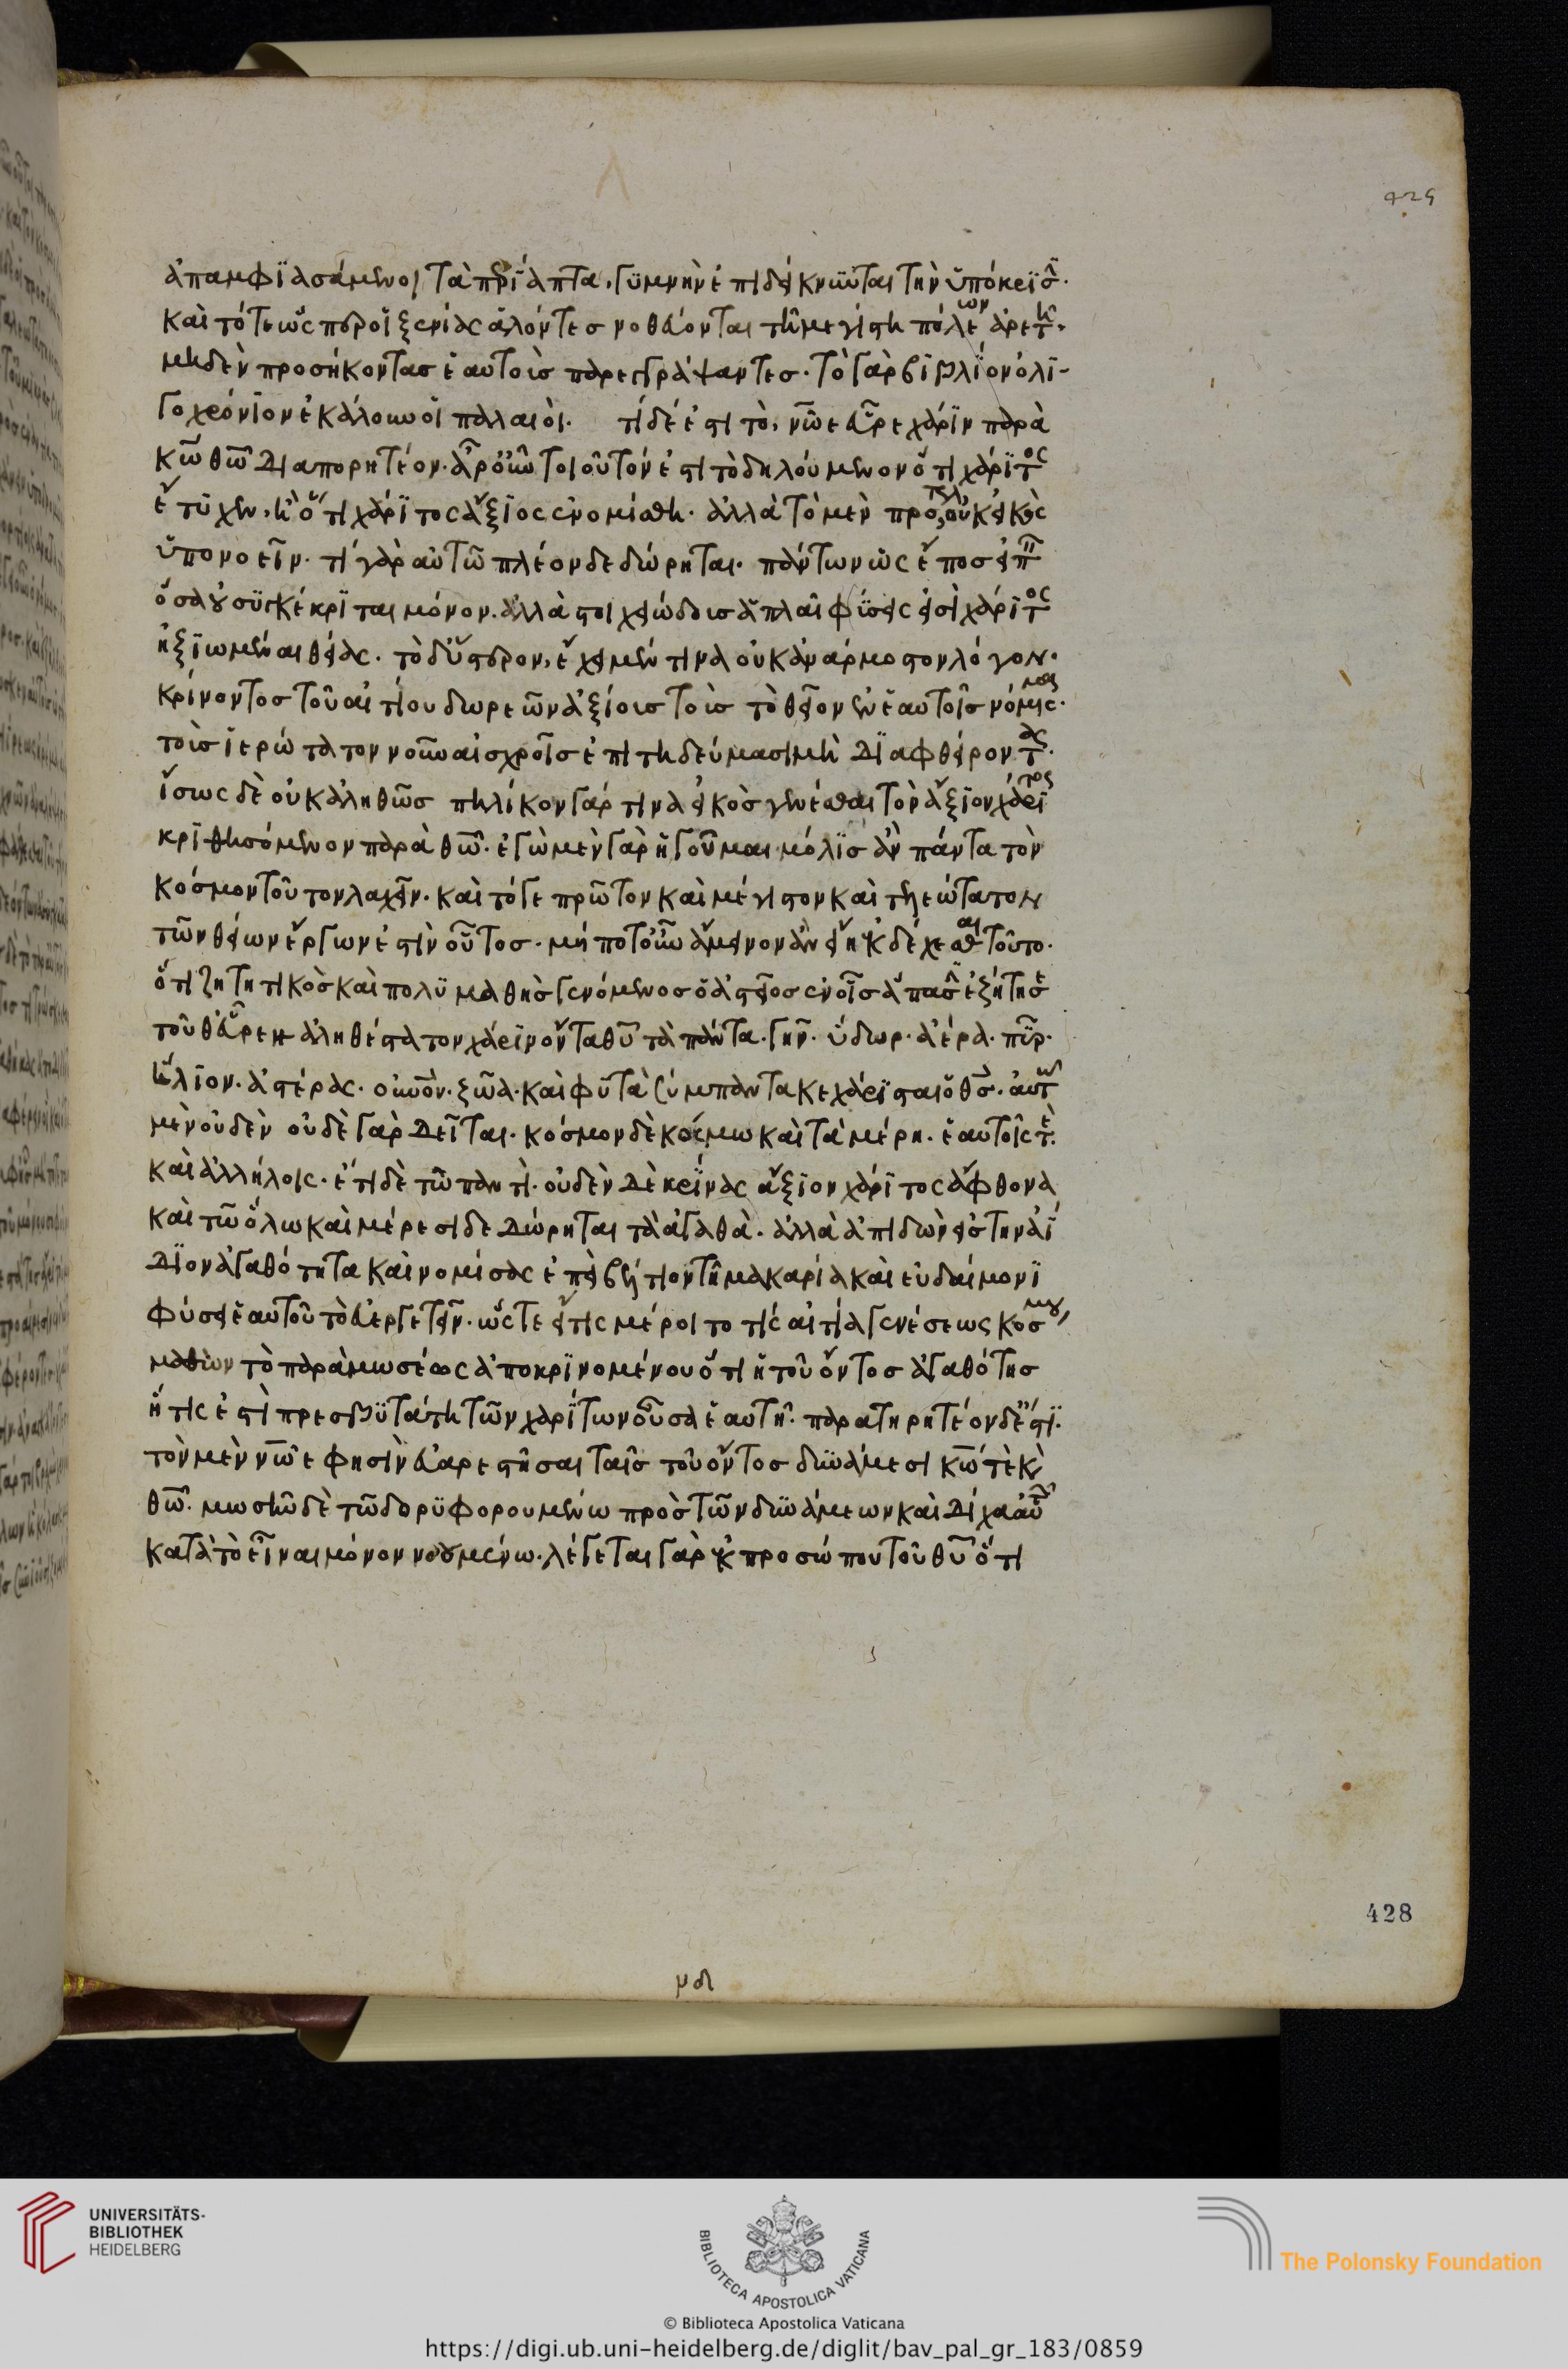 ἀπαμφϊασάμενοι τὰ περϊάπτα, γϋμνὴν ἐπιδείκνϋνται τὴν ὑπόκρϊσ̑.
καὶ τότε ὡς περ οἱ ξενίας ἁλόντες νοθεύονται τῆ μεγίστη πόλεων ἀρετῆς.
μηδὲν προσήκοντας ἑαυτοῖς παρεγγράψαντες. τὸ γὰρ βϊβλΐον ὀλϊ-
γοχρόνϊον ἐκάλουν οἱ παλαιοὶ. τί δέ ἐστι τὸ, νῶε εὗρε χάρϊν παρὰ
κω̅ θω̅ διαπορητέον. ἆρ' οὖν τοιοῦτόν ἐστι τὸ δηλούμενον ὅτι χάρϊτος
ἔτϋχεν, ἢ ὅτι χάρϊτος ἄξϊος ἐνομίσθη. ἀλλὰ τὸ μὲν πρότερον οὐκ εἰκὸς
ὑπονοεῖν. τί γὰρ αὐτῶ πλέον δεδώρηται. πάντων ὡς ἔπος εἰπεῖν
ὅσα οὐ σϋγκέκρϊται μόνον. ἀλλὰ στοιχειώδεις ἁπλαῖ φϋσεις εἰσὶ χάρϊτος
ἠξϊωμέναι θείας. τὸ δ' ὕστερον, ἔχει μέν τινα οὐκ ἀνάρμοστον λόγον.
κρίνοντος τοῦ αἰτίου δωρεῶν ἀξίους τοὺς τὸ θεῖον ἐν ἑαυτοῖς νόμισμα.
τοῖς ἱερώτατον νοῦν αἰσχροῖς ἐπιτηδεύμασι μὴ διαφθείροντας.
ἴσως δὲ οὐκ ἀληθῶς πηλίκον γάρ τινα εἰκὸς γενέσθαι τὸν ἄξϊον χάρϊτος
κρϊθησόμενον παρὰ θω̅. ἐγὼ μὲν γὰρ ἡγοῦμαι μόλϊς ἂν πάντα τὸν
κόσμον τούτον λαχεῖν. καὶ τό γε πρῶτον καὶ μέγιστον καὶ τελεώτατον
τῶν θείων ἔργων ἐστὶν οὗτος. μή ποτ' οὖν ἄμεινον ἂν εἴη ἐκδέχεσθαι τοῦτο.
ὅτι ζητητικὸς καὶ πολϋμαθὴς γενόμενος ὁ ἀστεῖος ἐν οἷς ἅπασϊν ἐζήτησε
τοῦθ' εὗρεν ἀληθέστατον χάρϊν ὄντα θυ̅ τὰ πάντα. γῆν. ὕδωρ. ἀέρα. πῦρ.
ἥλϊον. ἀστέρας. οὐνο̅ν. ζῶα. καὶ φϋτὰ σύμπαντα κεχάρϊσται ὁ θς̅. αὑτῶ
μὲν οὐδὲν οὐδὲ γὰρ δεῖται. κόσμον δὲ κόσμω καὶ τὰ μέρη. ἑαυτοῖς τὲ.
καὶ ἀλλήλοις. ἔτι δὲ τῶ παντὶ. οὐδὲν δὲ κρϊνας ἄξϊον χάρϊτος ἄφθονα
καὶ τῶ ὅλω καὶ μέρεσι δεδώρηται τὰ ἀγαθὰ. ἀλλὰ ἀπιδὼν εἰς τὴν ἀΐ
δϊον ἀγαθότητα καὶ νομίσας ἐπιβάλλον τῆ μακαρία καὶ εὐδαίμονϊ
φύσει ἑαυτοῦ τὸ εὐεργετεῖν. ὥστε εἴ τις μέροιτο τίς αἰτία γενέσεως κόσμου,
μαθὼν τὸ παρὰ μωσέως ἀποκρϊνομένου ὅτι ἡ τοῦ ὄντος ἀγαθότης
ἥτις ἐστὶ πρεσβϋτάτη τῶν χαρΐτων οὖσα ἑαυτῆ. παρατηρητέον δ' ἔστϊ.
τὸν μὲν νῶε φησὶν εὐαρεστῆσαι ταῖς τοῦ ὄντος δϋνάμεσι κω̅ τὲ καὶ
θω̅. μωσῆν δὲ τῶ δορϋφορουμένω πρὸς τῶν δϋνάμεων καὶ δίχα αὐτῶν
κατὰ τὸ εἶναι μόνον νοουμένω. λέγεται γὰρ ἐκ προσώπου τοῦ θυ̅ ὅτι
429
428
μδ
UNIVERSITÄTS-
BIBLIOTHEK
HEIDELBERG
BIBLIOTECA APOSTOLICA VATICANA
© Biblioteca Apostolica Vaticana
The Polonsky Foundation
https://digi.ub.uni-heidelberg.de/diglit/bav_pal_gr_183/0859